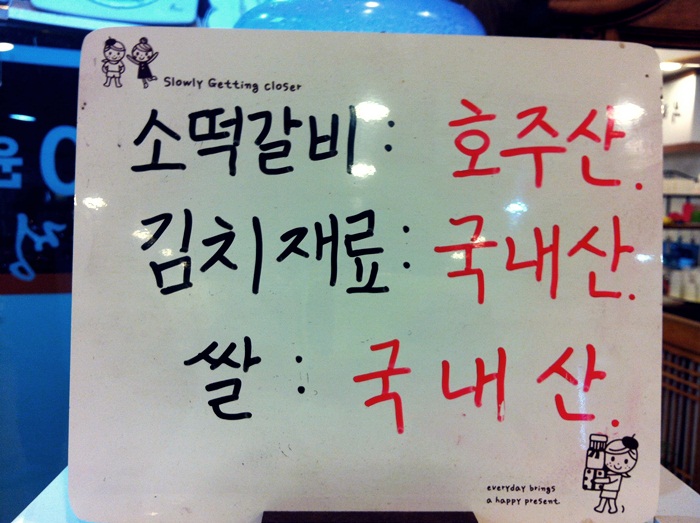 Slowly Getting closer
소떡갈비: 호주산.
김치재료: 국내산.
쌀: 국내산.
everyday brings
a happy present.